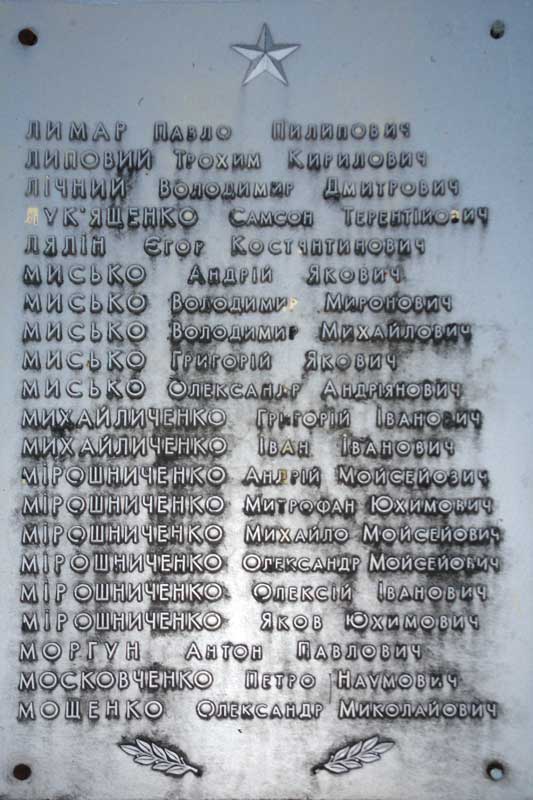 ЛИМАР ПАВЛО ПИЛИПОВИЧ
ЛИПОВИЙ ТРОХИМ КИРИЛОВИЧ
ЛІЧНИЙ ВОЛОДИМИР ДМИТРОВИЧ
ЛУК'ЯЩЕНКО САМСОН ТЕРЕНТІЙОВИЧ
ЛЯЛІН ЄГОР КОСТЯНТИНОВИЧ
МИСЬКО АНДРІЙ ЯКОВИЧ
МИСЬКО ВОЛОДИМИР МИРОНОВИЧ
МИСЬКО ВОЛОДИМИР МИХАЙЛОВИЧ
МИСЬКО ГРИГОРІЙ ЯКОВИЧ
МИСЬКО ОЛЕКСАНДР АНДРІЯНОВИЧ
МИХАЙЛИЧЕНКО ГРИГОРІЙ ІВАНОВИЧ
МИХАЙЛИЧЕНКО ІВАН ІВАНОВИЧ
МІРОШНИЧЕНКО АНДРІЙ МОЙСЕЙОВИЧ
МІРОШНИЧЕНКО МИТРОФАН ЮХИМОВИЧ
МІРОШНИЧЕНКО МИХАЙЛО МОЙСЕЙОВИЧ
МІРОШНИЧЕНКО ОЛЕКСАНДР МОЙСЕЙОВИЧ
МІРОШНИЧЕНКО ОЛЕКСІЙ ІВАНОВИЧ
МІРОШНИЧЕНКО ЯКОВ ЮХИМОВИЧ
МОРГУН АНТОН ПАВЛОВИЧ
МОСКОВЧЕНКО ПЕТРО НАУМОВИЧ
МОЩЕНКО ОЛЕКСАНДР МИКОЛАЙОВИЧ